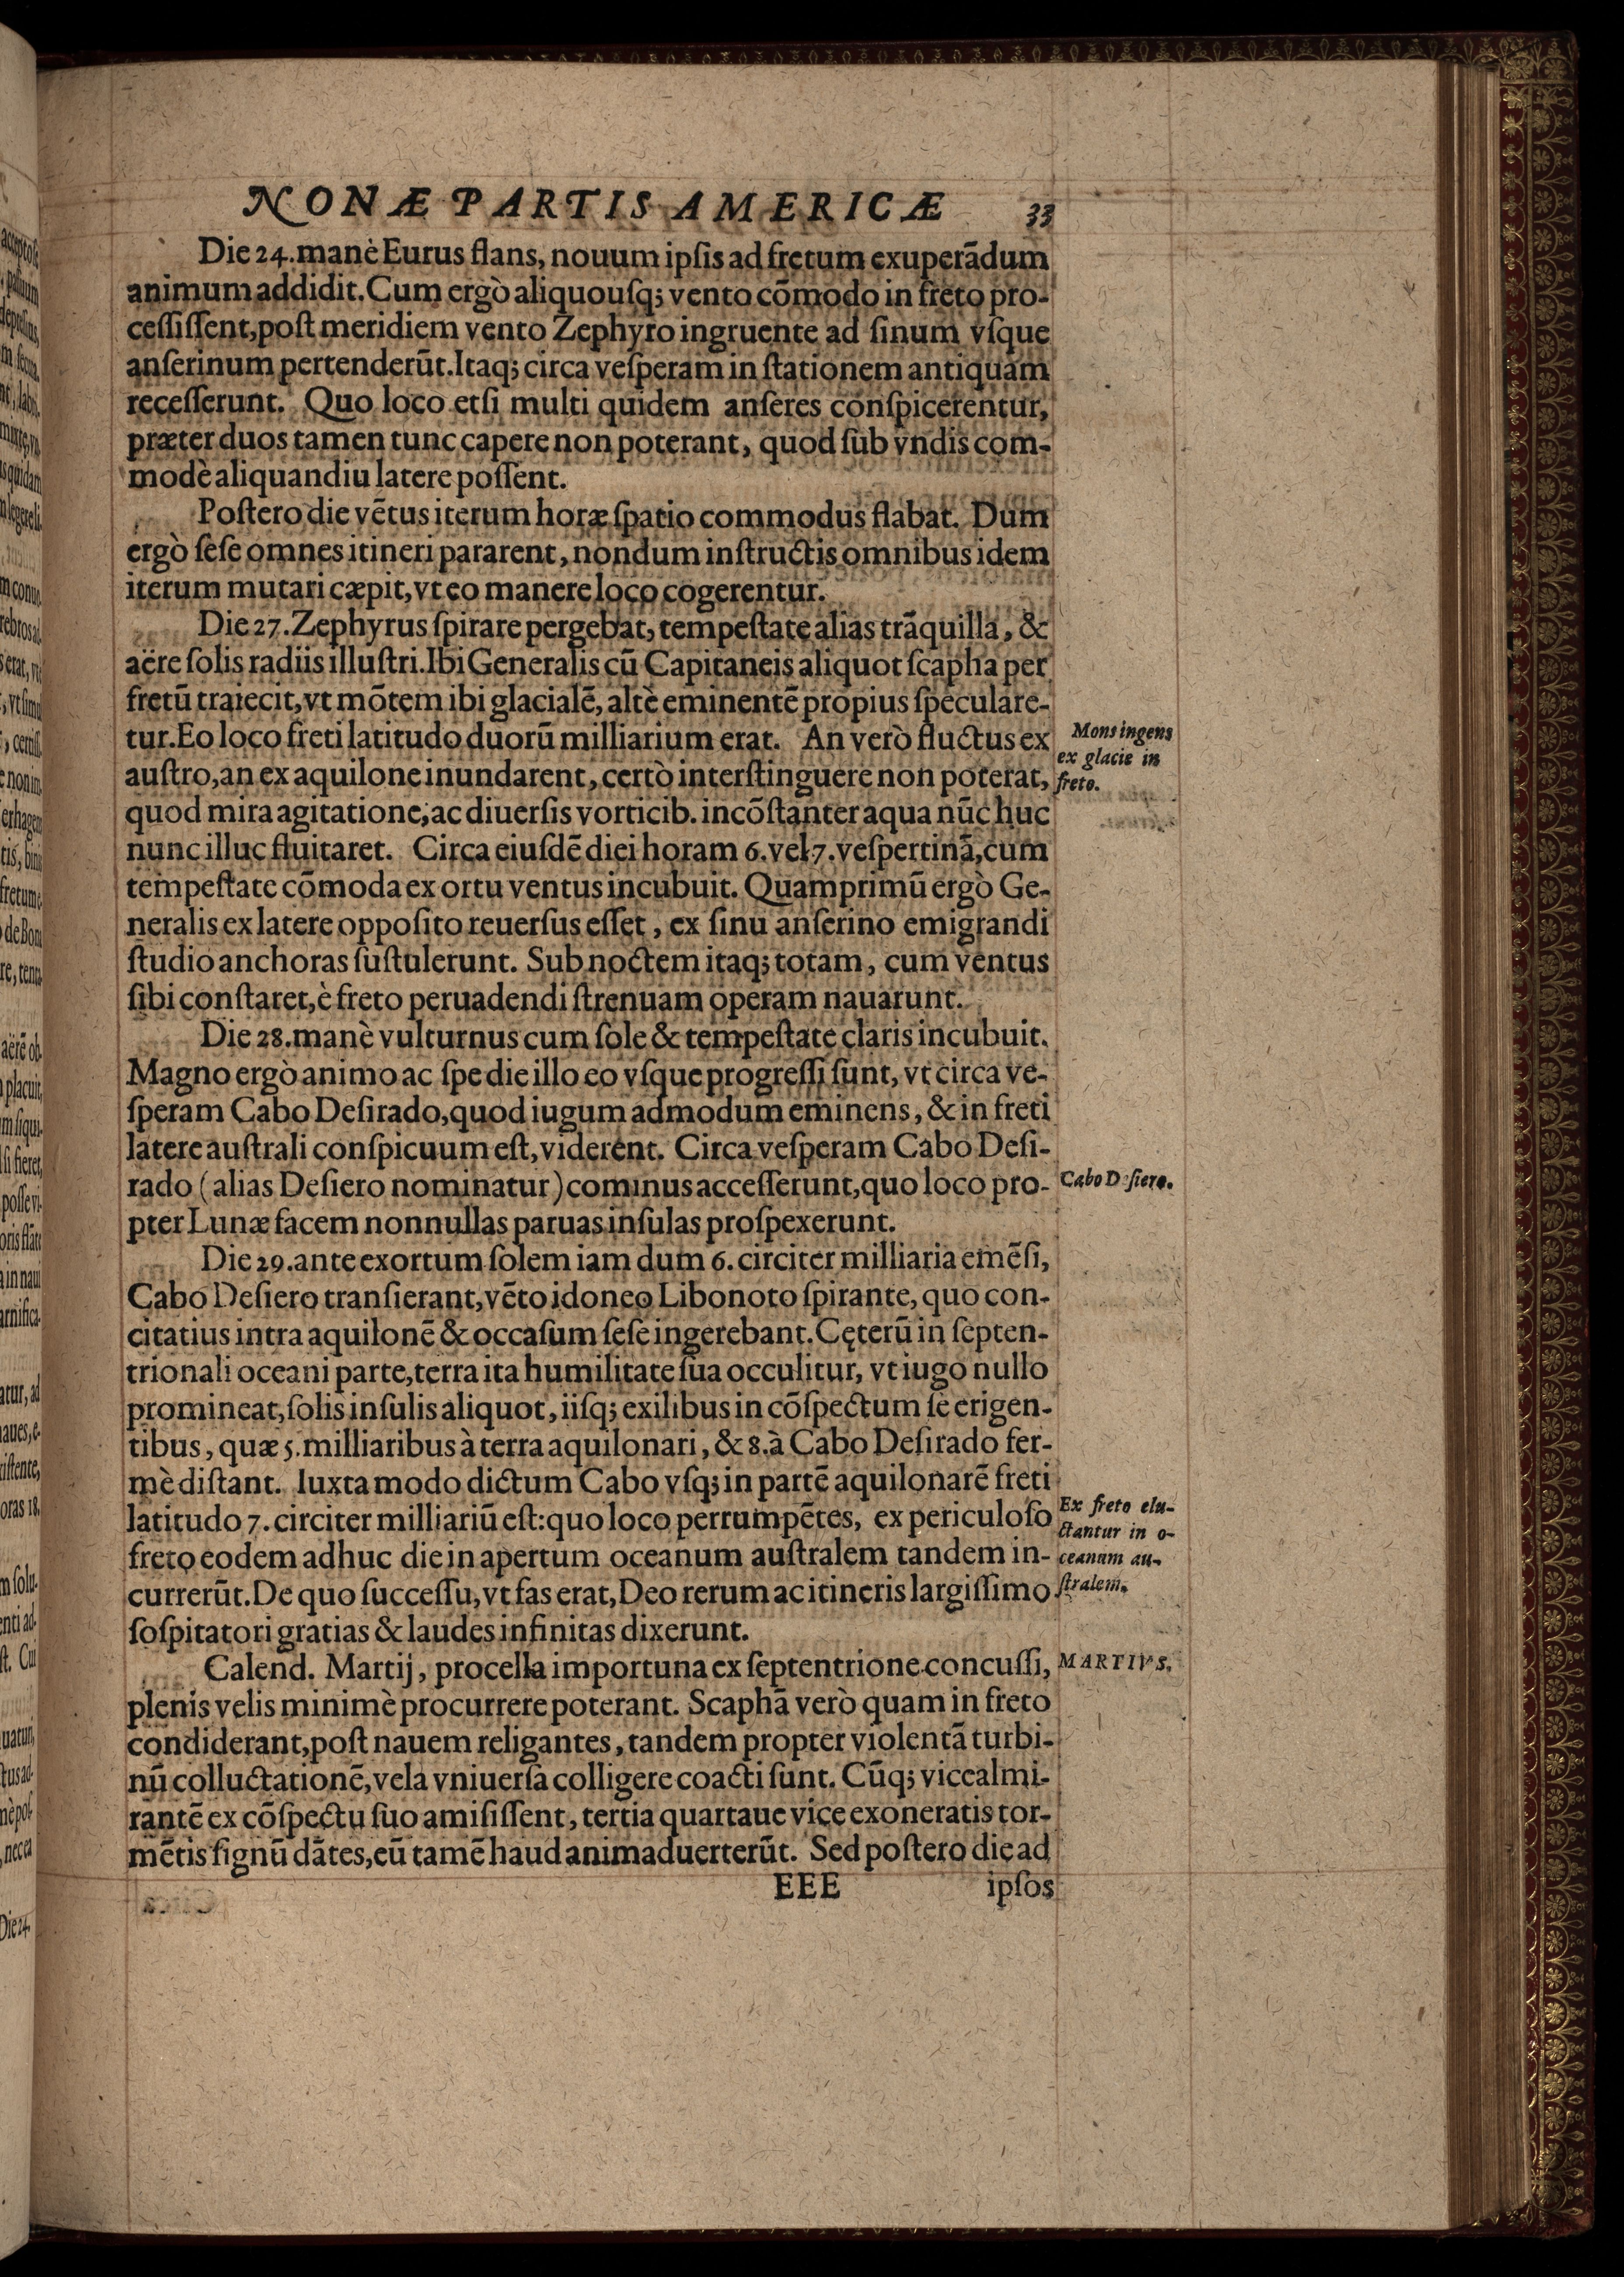 NONÆ PARTIS AMERICÆ 33
Die 24. manè Eurus flans, nouum ipſis ad fretum exuperādum
animum addidit. Cum ergò aliquouſq; vento cōmodo in freto pro-
ceſſiſſent, poſt meridiem vento Zephyro ingruente ad ſinum vſque
anſerinum pertenderūt. Itaq; circa veſperam in ſtationem antiquam
receſſerunt. Quo loco etſi multi quidem anſeres conſpicerentur,
præter duos tamen tunc capere non poterant, quod ſub vndis com-
modè aliquandiu latere poſſent.
Poſtero die vētus iterum horæ ſpatio commodus flabat. Dum
ergò ſeſe omnes itineri pararent, nondum inſtructis omnibus idem
iterum mutari cæpit, vt eo manere loco cogerentur.
Die 27. Zephyrus ſpirare pergebat, tempeſtate alias trāquilla, &
aëre ſolis radiis illuſtri. Ibi Generalis cū Capitaneis aliquot ſcapha per
fretū traiecit, vt mōtem ibi glacialē, altè eminentē propius ſpeculare-
tur. Eo loco freti latitudo duorū milliarium erat. An verò fluctus ex
auſtro, an ex aquilone inundarent, certò interſtinguere non poterat,
quod mira agitatione, ac diuerſis vorticib. incōſtanter aqua nūc huc
nunc illuc fluitaret. Circa eiuſdē diei horam 6. vel 7. veſpertinā, cum
tempeſtate cōmoda ex ortu ventus incubuit. Quamprimū ergò Ge-
neralis ex latere oppoſito reuerſus eſſet, ex ſinu anſerino emigrandi
ſtudio anchoras ſuſtulerunt. Sub noctem itaq; totam, cum ventus
ſibi conſtaret, è freto peruadendi ſtrenuam operam nauarunt.
Die 28. manè vulturnus cum ſole & tempeſtate claris incubuit.
Magno ergò animo ac ſpe die illo eo vſque progreſſi ſunt, vt circa ve-
ſperam Cabo Deſirado, quod iugum admodum eminens, & in freti
latere auſtrali conſpicuum eſt, viderent. Circa veſperam Cabo Deſi-
rado (alias Deſiero nominatur) cominus acceſſerunt, quo loco pro-
pter Lunæ facem nonnullas paruas inſulas proſpexerunt.
Die 29. ante exortum ſolem iam dum 6. circiter milliaria emēſi,
Cabo Deſiero tranſierant, vēto idoneo Libonoto ſpirante, quo con-
citatius intra aquilonē & occaſum ſeſe ingerebant. Cęterū in ſepten-
trionali oceani parte, terra ita humilitate ſua occulitur, vt iugo nullo
promineat, ſolis inſulis aliquot, iiſq; exilibus in cōſpectum ſe erigen-
tibus, quæ 5. milliaribus à terra aquilonari, & 8. à Cabo Deſirado fer-
mè diſtant. Iuxta modo dictum Cabo vſq; in partē aquilonarē freti
latitudo 7. circiter milliariū eſt: quo loco perrumpētes, ex periculoſo
freto eodem adhuc die in apertum oceanum auſtralem tandem in-
currerūt. De quo ſucceſſu, vt fas erat, Deo rerum ac itineris largiſſimo
ſoſpitatori gratias & laudes infinitas dixerunt.
Calend. Martij, procella importuna ex ſeptentrione concuſſi,
plenis velis minimè procurrere poterant. Scaphā verò quam in freto
condiderant, poſt nauem religantes, tandem propter violentā turbi-
nū colluctationē, vela vniuerſa colligere coacti ſunt. Cūq; viccalmi-
rantē ex cōſpectu ſuo amiſiſſent, tertia quartaue vice exoneratis tor-
mētis ſignū dātes, eū tamē haud animaduerterūt. Sed poſtero die ad
EEE ipſos
Mons ingens
ex glacie in
freto.
Cabo Deſiero.
Ex freto elu-
ctantur in o-
ceanum au-
ſtralem.
MARTIVS.